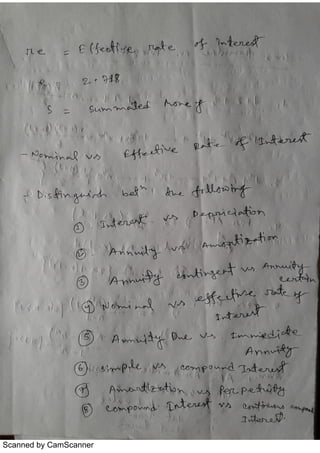 re = Effective rate of interest
e = 2.718
S = Summated Money
- Nominal vs Effective Rate of Interest
+ Distinguish betn the following
① Interest vs Depriciation
② Annuity vs Amortization
③ Annuity contingent vs Annuity
certain
④ Nominal vs effective rate of
Interest
⑤ Annuity Due vs Immediate
Annuity
⑥ simple vs compound Interest
⑦ Amortization vs Perpetuity
⑧ compound Interest vs continuous compound
Interest
Scanned by CamScanner